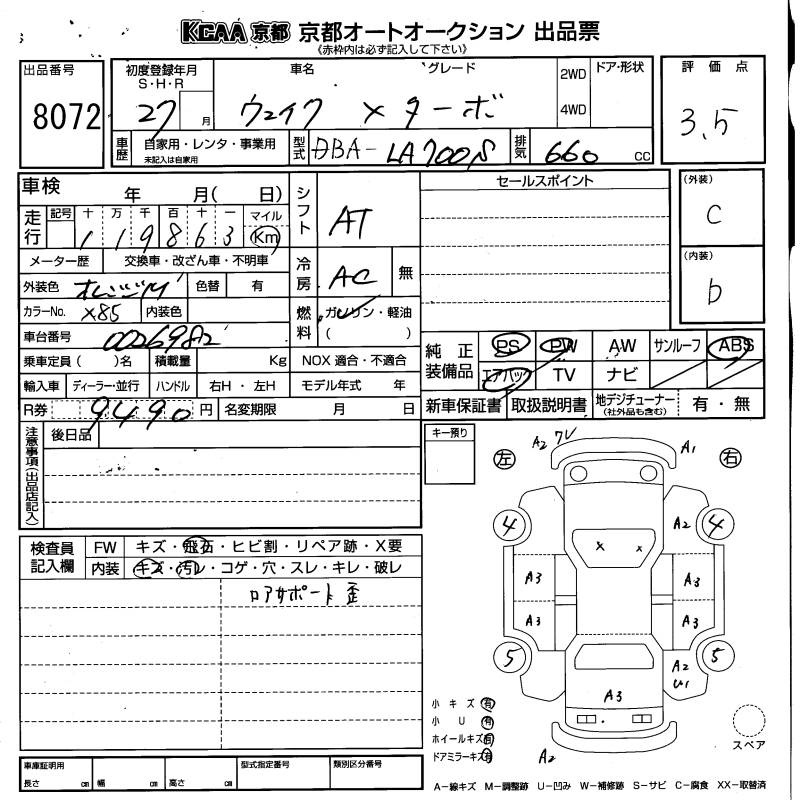 KCAA 京都 京都オートオークション 出品票
《赤枠内は必ず記入して下さい》
出品番号
8072
初度登録年月
S・H・R
27 月
車名
グレード
ウェイク Xターボ
2WD
4WD
ドア・形状
評価点
3.5
車歴
自家用・レンタ・事業用
未記入は自家用
型式
DBA-LA700S
排気
660 cc
車検 年 月( 日)
走行
記号 十 万 千 百 十 一 マイル
119863 Km
シフト
AT
メーター歴 交換車・改ざん車・不明車
冷房
AC 無
外装色
色替 有
カラーNo. X85 内装色
燃料
ガソリン・軽油
( )
車台番号 0026982
乗車定員( )名 積載量 Kg NOX適合・不適合
輸入車 ディーラー・並行 ハンドル 右H・左H モデル年式 年
R券 9490 円 名変期限 月 日
セールスポイント
(外装)
C
(内装)
b
純正装備品
PS PW AW サンルーフ ABS
エアバック TV ナビ
新車保証書 取扱説明書 地デジチューナー (社外品も含む) 有・無
注意事項(出品店記入)
後日品
キー預り
検査員記入欄
FW キズ・飛石・ヒビ割・リペア跡・X要
内装 キズ・汚レ・コゲ・穴・スレ・キレ・破レ
ロアサポート歪
A2 フレ A1
左 右
4 A2 4
x x
A3 A3
A3 A3
5 A2 U1 5
A3
A2
小キズ 有
小U 有
ホイールキズ 有
ドアミラーキズ 有
スペア
車庫証明用
長さ cm 幅 cm 高さ cm
型式指定番号
類別区分番号
A-線キズ M-調整跡 U-凹み W-補修跡 S-サビ C-腐食 XX-取替済